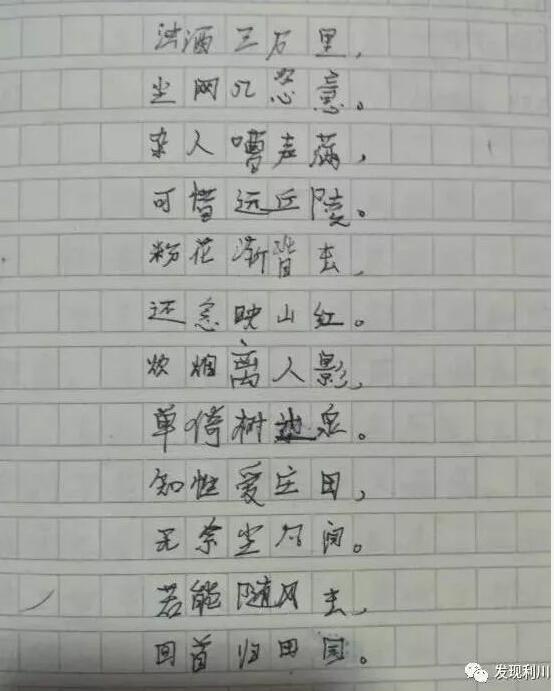 浊酒三石里，
尘网几忽意。
杂人嘈声荡，
可惜远丘陵。
粉花渐背去，
还念映山红。
炊烟离人影，
单倚树边泉。
知性爱庄田，
无奈尘俗间。
若能随风去，
回首归田园。
发现利川